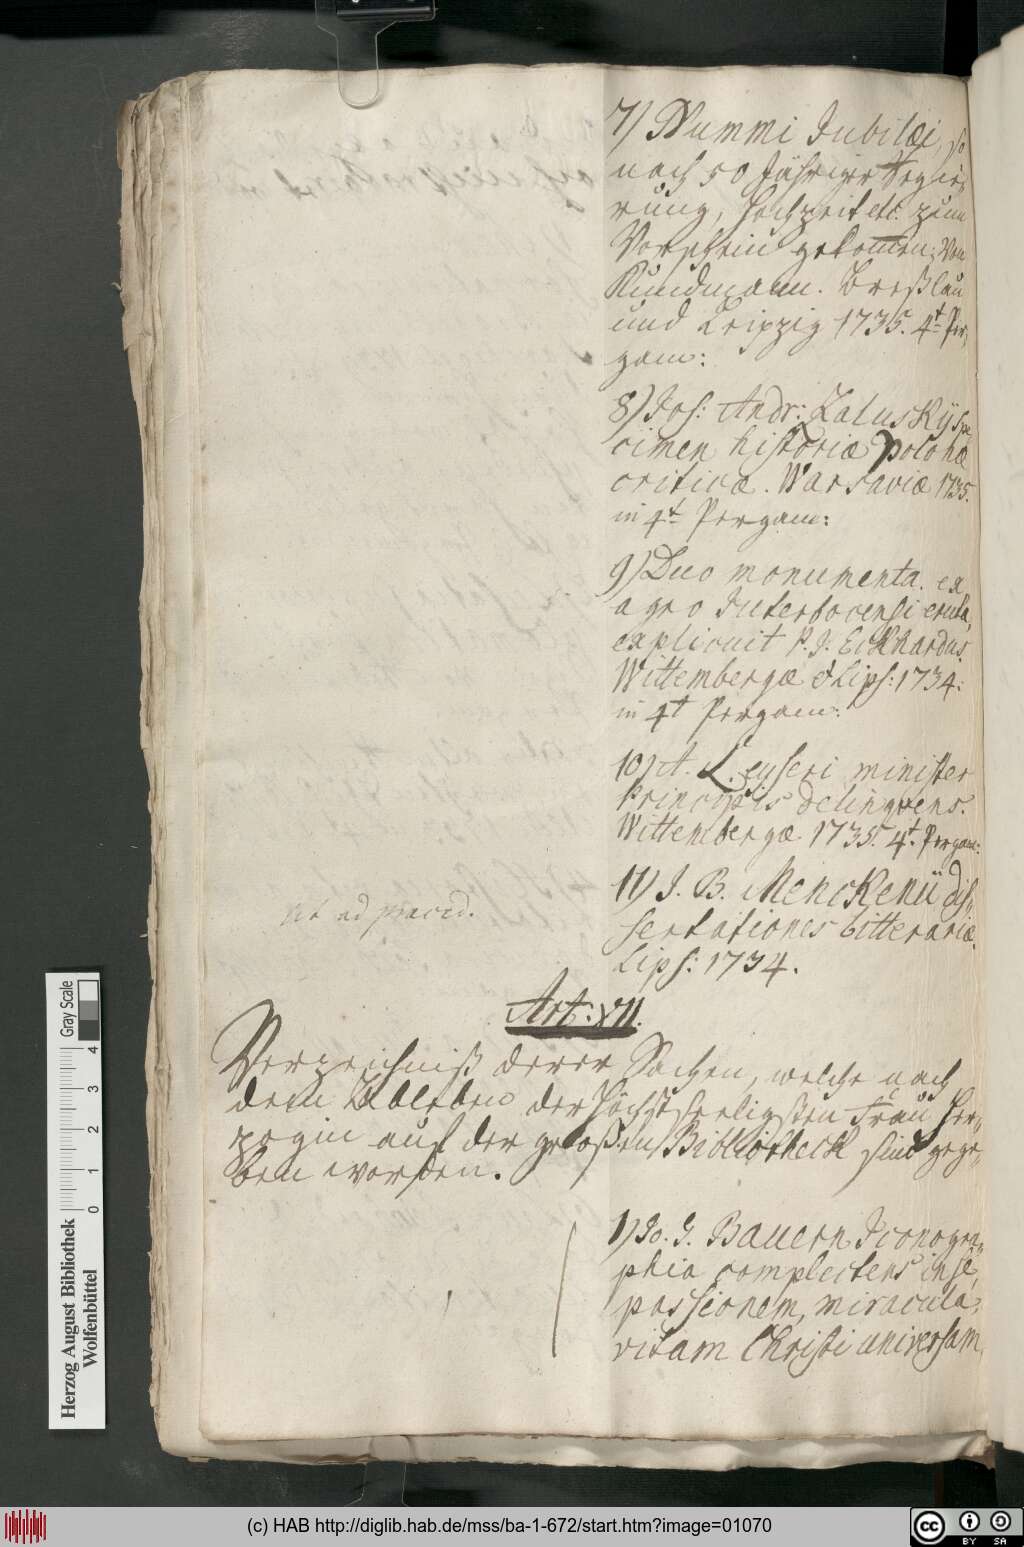 7) Nummi Jubilæi, so
nach 50 Jähriger Regie-
rung, Hochzeit etc. zum
Vorschein gekomen; von
Kundmann. Breßlau
und Leipzig 1735. 4t Per-
gam:
8) Jos: Andr: Zaluskÿ spe-
cimen historiæ Polonæ
criticæ. Warsaviæ 1735.
in 4t Pergam:
9) Duo monumenta ex
agro Juterbocensi eruta,
explicuit P. J. Eckhardus.
Wittembergæ & Lips: 1734:
in 4t Pergam:
10) A. L. eyseri minister
Principis delinquens.
Wittembergæ 1735. 4t. Pergam:
11) J. B. Menckenii dis-
sertationes litterariæ.
Lips: 1734.
ut ad præced.
Art: XII.
Verzeichniß derer Sachen, welche nach
dem Ableben der Höchstseeligsten Frau Her-
zogin auf der großen Bibliotheck sind gege-
ben worden.
1) Jo. G. Bauern Iconogra-
phia complectens in se
passionem, miracula,
vitam Christi universam,
Herzog August Bibliothek
Wolfenbüttel
0 1 2 3 4
Gray Scale
(c) HAB http://diglib.hab.de/mss/ba-1-672/start.htm?image=01070
cc BY SA